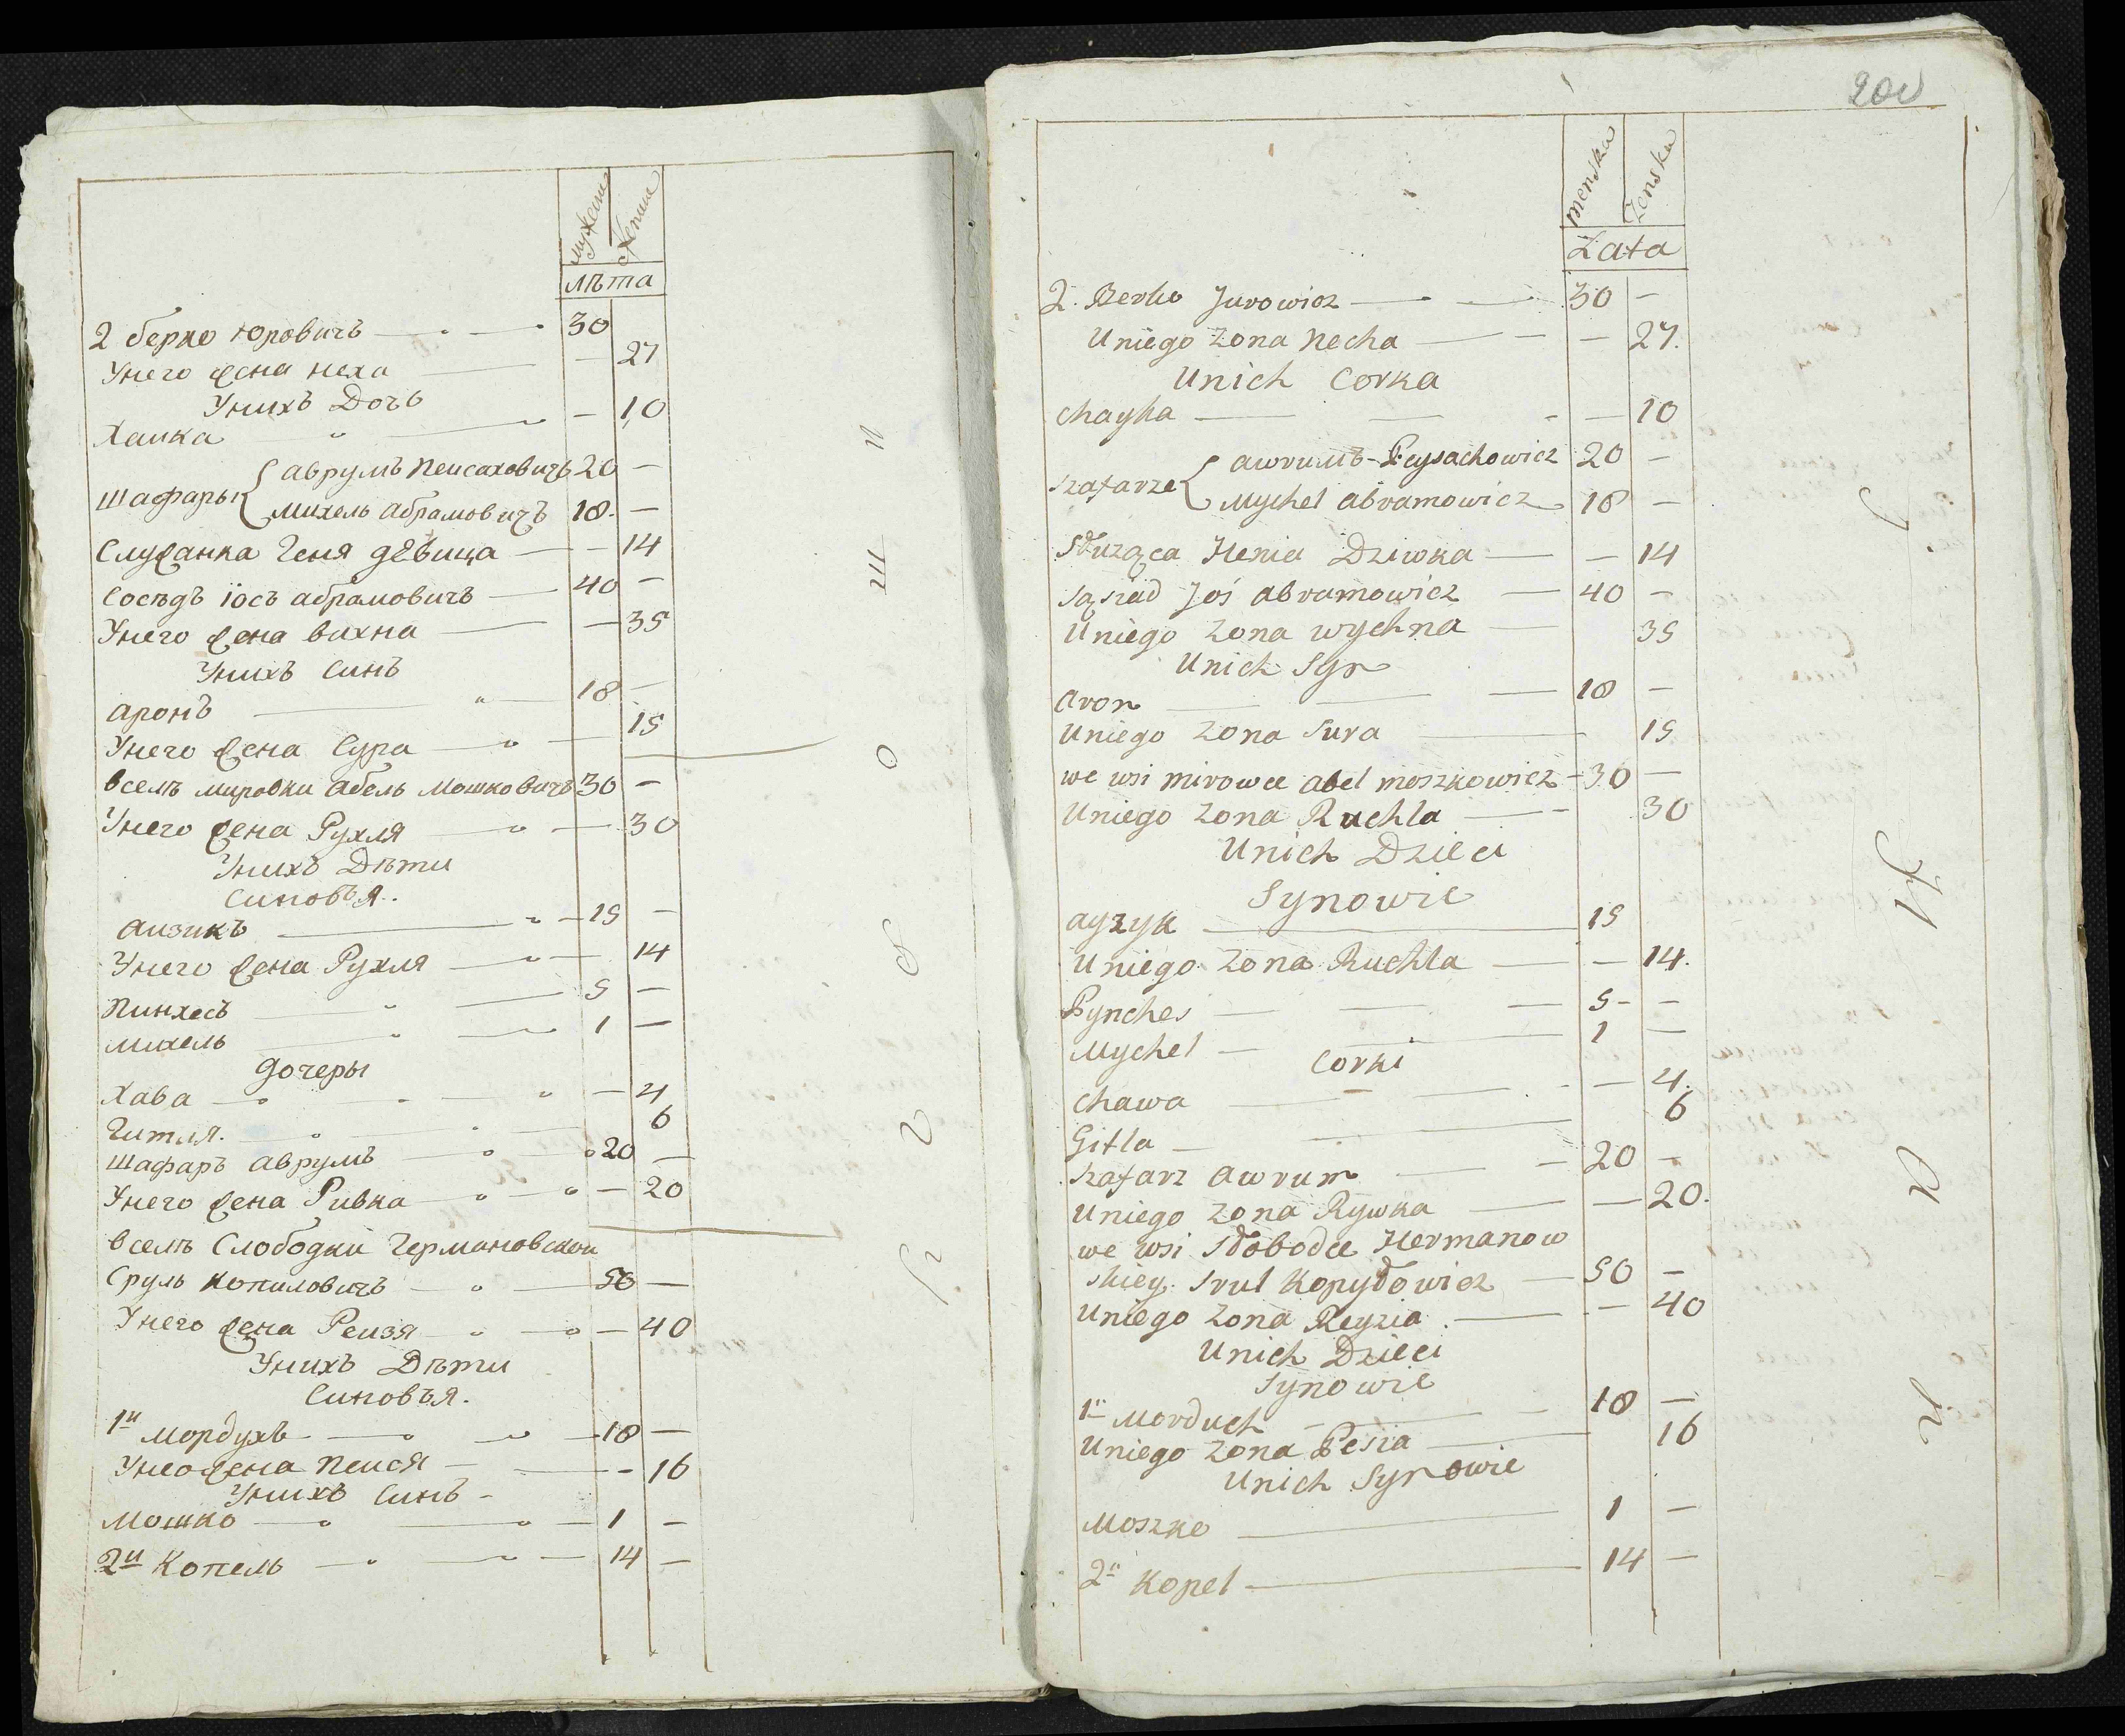 мужеска
женска
лѣта
2 берко Юровичъ 30
Унего жена неха — 27
Унихъ Дочь
Хаика — 10
Шафары { аврумъ Пеисаховичъ 20 —
михель абрамовичъ 18. —
Служанка Геня дѣвица — 14
Сосѣдъ Іосъ абрамовичъ 40 —
Унего жена вахна — 35
Унихъ Синъ
аронъ 18 —
Унего жена Сура — 15
вселѣ мировки абель мошковичъ 30 —
Унего жена Рухля — 30
Унихъ Дѣти
Синовъя.
аизикъ 15 —
Унего жена Рухля — 14
Пинхесъ 5 —
михель 1 —
дочеры
Хава — 4
Гитля. 6
шафаръ аврумъ 20 —
Унего жена Ривка — 20
вселѣ Слободки Германовскои
Сруль Копиловичъ 50 —
Унего жена Реизя — 40
Унихъ Дѣти
Синовъя.
1й мордухъ 18 —
Унео жена Пеися — 16
Унихъ Синъ
мошко 1 —
2й Копель 14 —
200
menska
Zenska
Lata
2. Berko Jurowicz 30 —
Uniego Zona Necha — 27.
Unich Corka
Chayka — 10
szafarze { awrumъ Peysachowicz 20 —
Mychel abramowicz 18 —
służąca Henia Dziwka — 14
sąsiad Joś abramowicz 40 —
Uniego Zona wychna 35
Unich Syn
aron 18 —
Uniego Zona Sura 15
we wsi mirowce abel moszkowicz 30 —
Uniego Zona Ruchla 30
Unich Dzieci
Synowie
ayzyk 15
Uniego Zona Ruchla — 14.
Pynches 5 —
Mychel 1 —
Corki
Chawa — 4.
Gitla 6
szafarz awrum 20 —
Uniego Zona Rywka — 20.
we wsi słobodce Hermanow
skiey Srul Kopyłowicz 50 —
Uniego Zona Reyzia — 40
Unich Dzieci
Synowie
1й Morduch 18 —
Uniego Zona Pesia 16
Unich Synowie
Moszko 1 —
2й Kopel 14 —